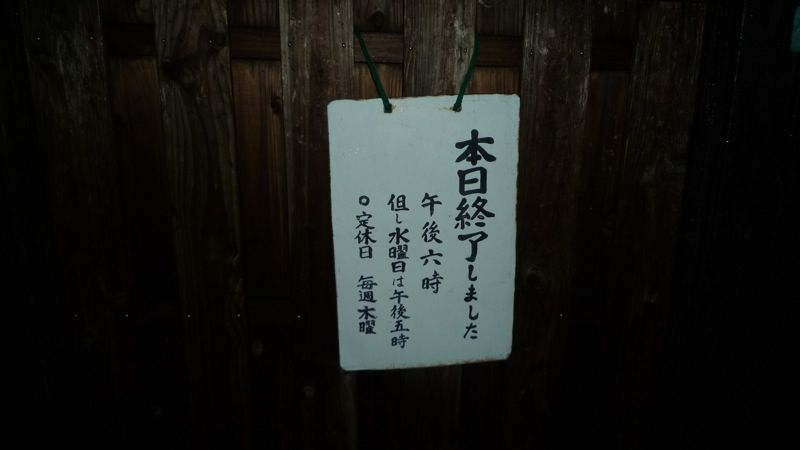 本日終了しました
午後六時
但し水曜日は午後五時
○定休日 毎週木曜